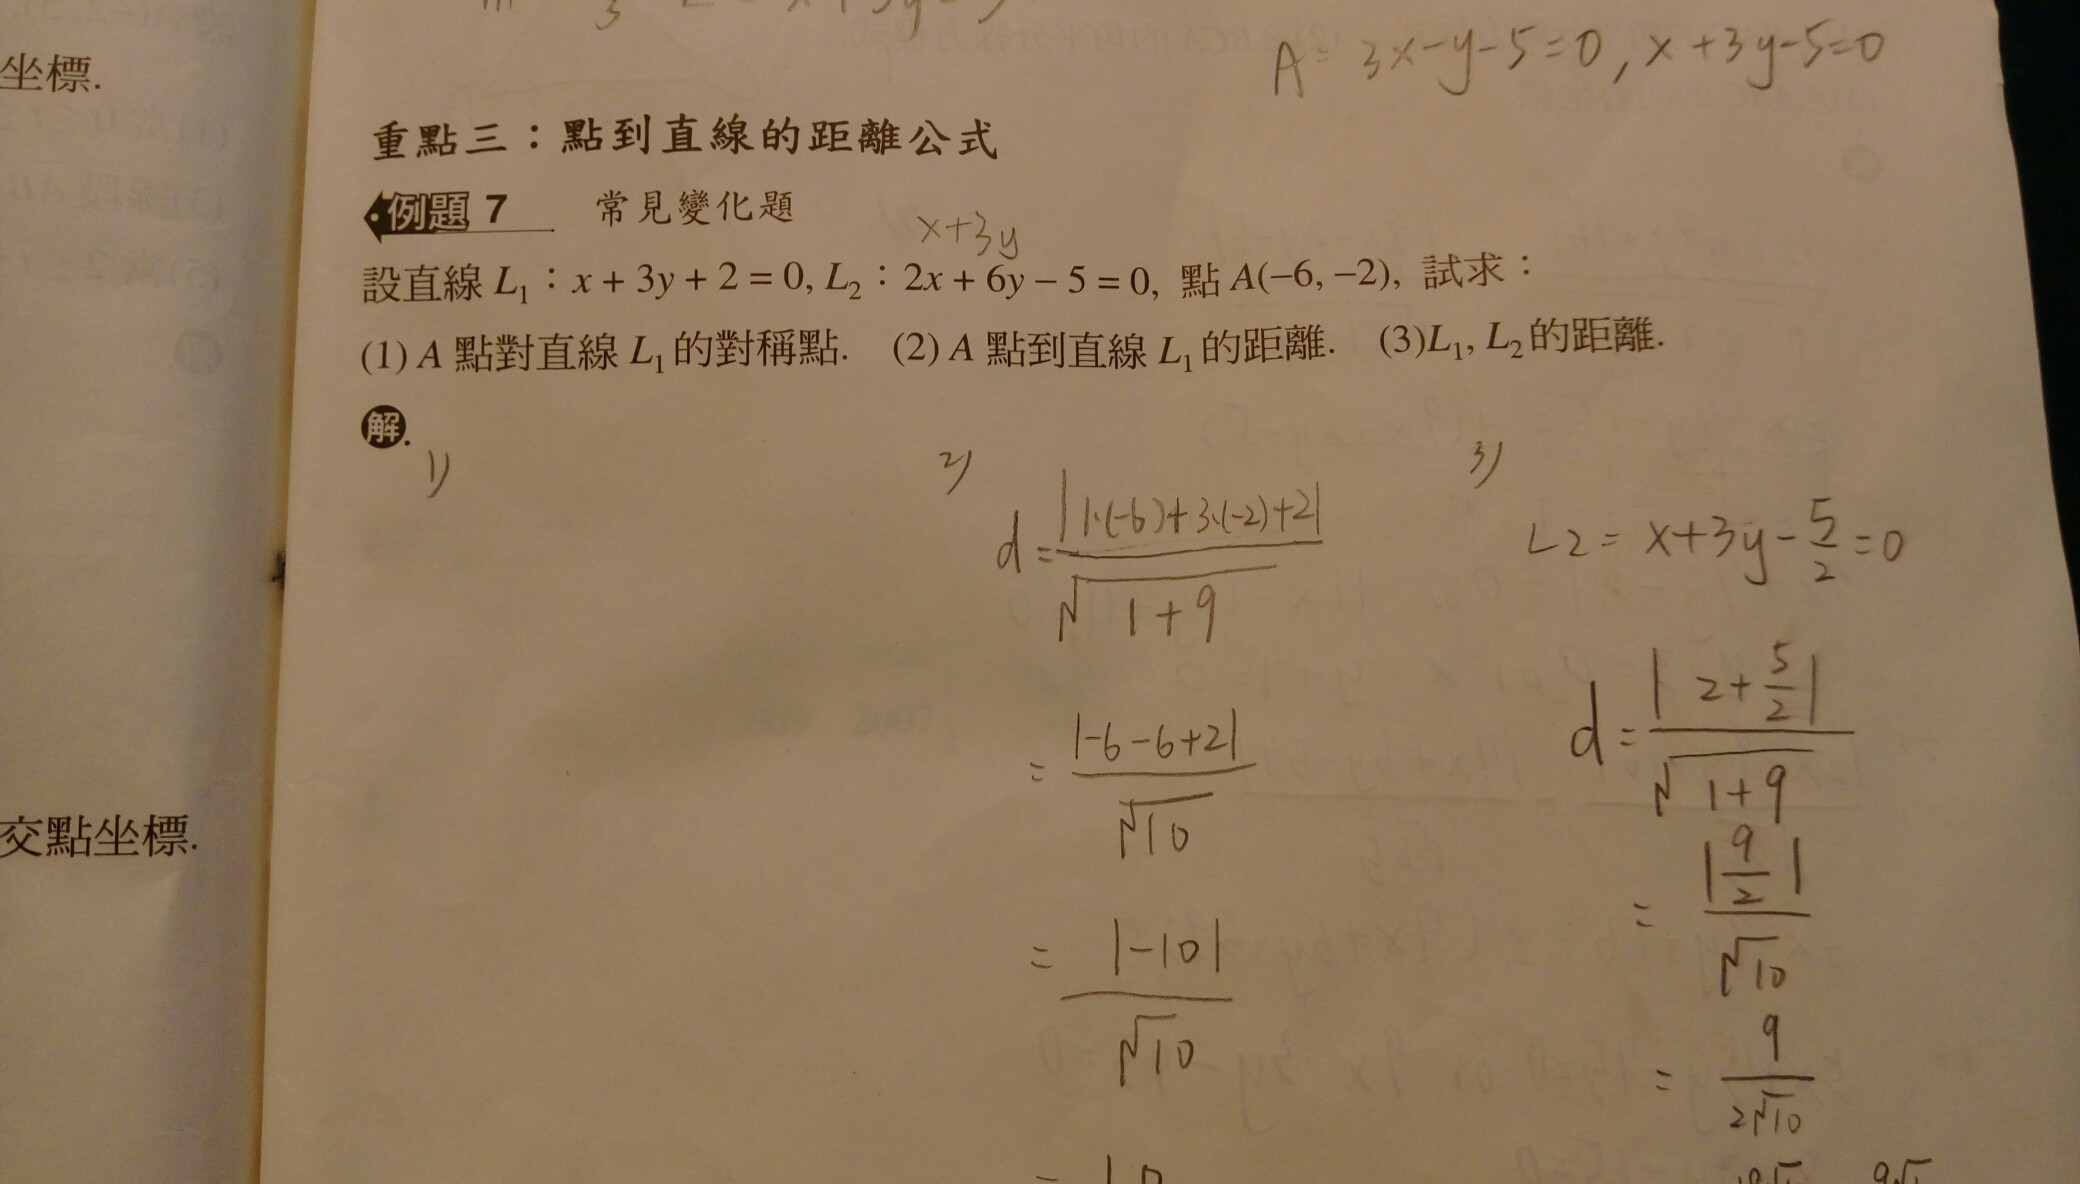 坐標.
交點坐標.
A = 3x-y-5=0, x+3y-5=0
重點三：點到直線的距離公式
例題 7 常見變化題
x+3y
設直線 L₁：x + 3y + 2 = 0, L₂：2x + 6y − 5 = 0, 點 A(−6, −2), 試求：
(1) A 點對直線 L₁ 的對稱點. (2) A 點到直線 L₁ 的距離. (3)L₁, L₂ 的距離.
解.
1)
2)
d = |1·(-6)+3·(-2)+2| / √1+9
= |-6-6+2| / √10
= |-10| / √10
3)
L2 = x+3y-5/2=0
d = |2+5/2| / √1+9
= |9/2| / √10
= 9 / 2√10